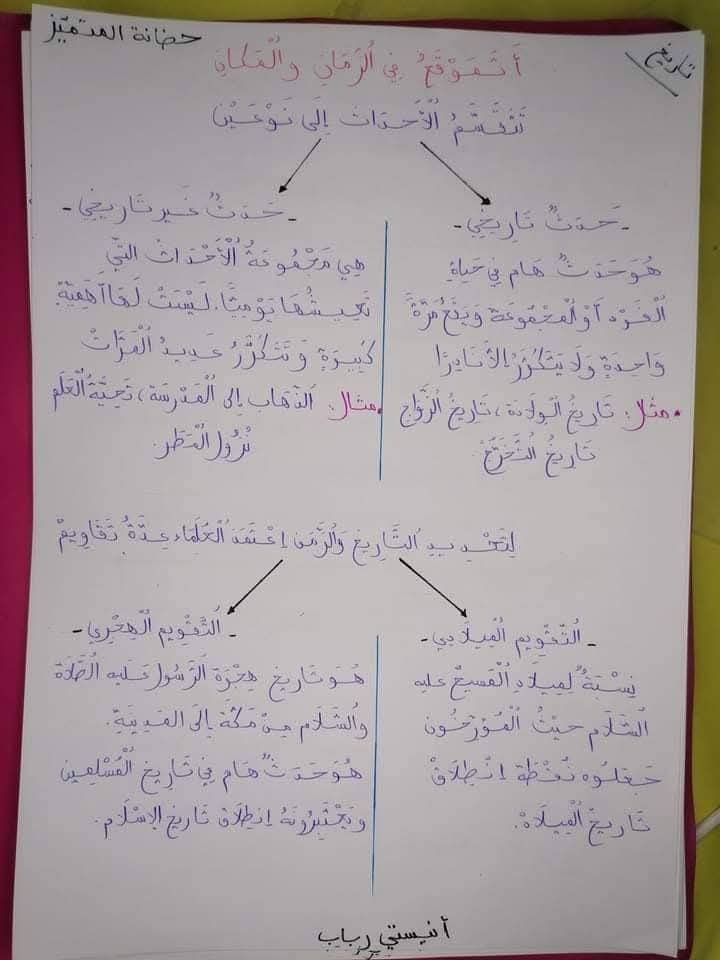 تاريخ
حضانة المتميّز
أَتَمَوْقَعُ فِي الزَمَانِ والمكانِ
تَنْقَسِمُ الْأَحْدَاثُ إِلَى نَوْعَيْنِ
- حَدَثٌ تَارِيخِي -
هُوَ حَدَثٌ هَام فِي حَيَاةِ
الْفَرْدِ أَوْ الْمَجْمُوعَةِ وَيَقَعُ مَرَّةً
وَاحِدَةٍ وَلَا يَتَكَرَّرُ إلاَّ نَادِرًا
• مثل: تَارِيخُ الْوِلَادَةِ، تَارِيخُ الزَّوَاجِ
تَارِيخُ التَّخَرُّجْ
- حَدَثٌ غَيْر تَارِيخِي -
هِيَ مَجْمُوعَةُ الْأَحْدَاثِ التِّي
نَعِيشُهَا يَوْمِيًّا. لَيْسَتْ لَهَا أَهَمِّيَّةٌ
كَبِيرَةٍ وَتَتَكَرَّرُ عَدِيدُ الْمَرَّاتْ
• مثال: الذَّهَاب إلى الْمَدْرَسَةِ، تَحِيَّةُ الْعَلَم
نُزُولُ الْمَطَر.
لِتَحْدِيدِ التَّارِيخِ وَالزَّمَنِ اِعْتَمَدَ الْعُلَمَاء عِدَّةُ تَقَاوِيمْ
- التَّقْوِيم الْمِيلَادِي -
نِسْبَةً لِمِيلَادِ الْمَسِيحْ عليه
السَّلَام حَيْثُ الْمُؤَرِّخُون
جَعَلُوه نُقْطَة اِنْطِلَاقْ
تَارِيخُ الْمِيلَاد.
- التَّقْوِيم الْهِجْرِي -
هُوَ تَارِيخ هِجْرَة الرَّسُول عَلَيه الصَّلَاة
وَالسَّلَام مِنْ مَكَّةَ إِلَى الْمَدِينَةِ.
هُوَ حَدَثٌ هَام فِي تَارِيخ الْمُسْلِمِين
وَيَعْتَبِرُونَهُ اِنطِلَاق تَارِيخ الإسْلَام.
أنيستي رباب